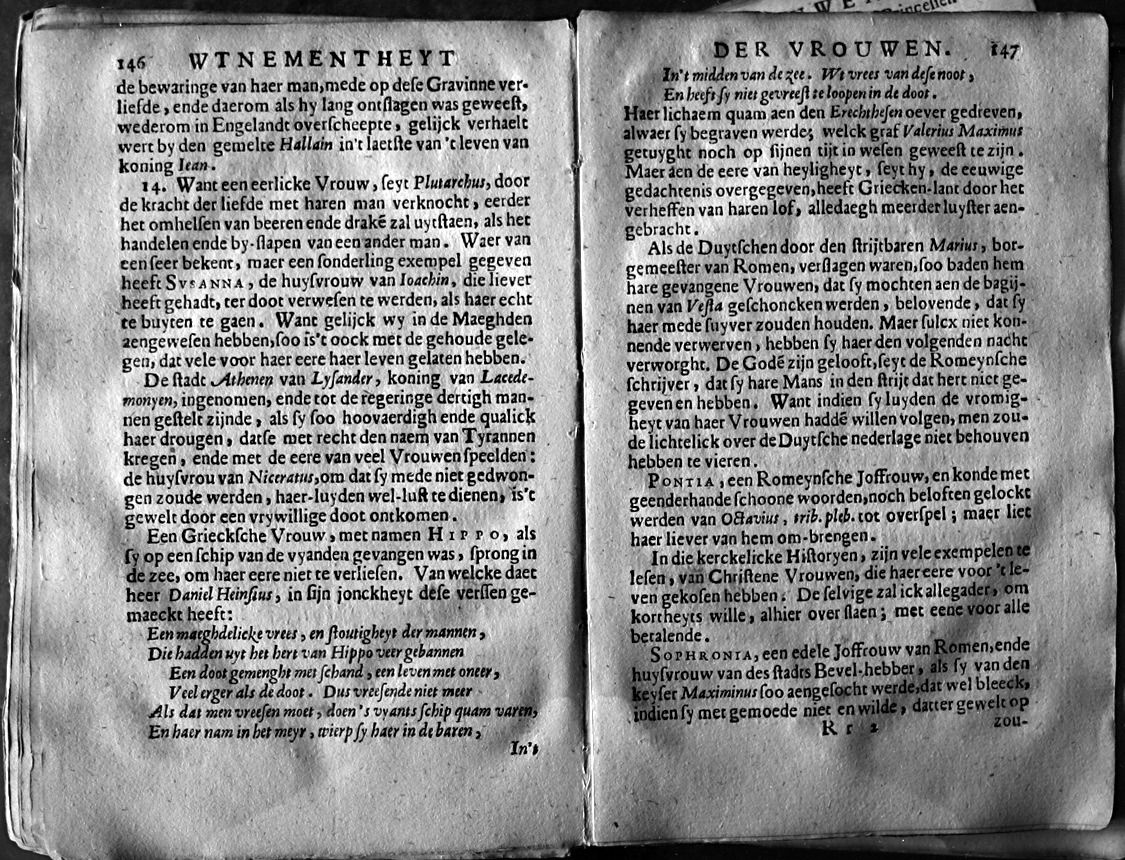 146 WTNEMENTHEYT
de bewaringe van haer man,mede op deſe Gravinne ver-
liefde, ende daerom als hy lang ontſlagen was geweeſt,
wederom in Engelandt overſcheepte, gelijck verhaelt
wert by den gemelte Hallain in't laetſte van 't leven van
koning Iean.
14. Want een eerlicke Vrouw, ſeyt Plutarchus, door
de kracht der liefde met haren man verknocht, eerder
het omhelſen van beeren ende drakē zal uytſtaen, als het
handelen ende by-ſlapen van een ander man. Waer van
een ſeer bekent, maer een ſonderling exempel gegeven
heeft SVSANNA, de huyſvrouw van Ioachin, die liever
heeft gehadt, ter doot verweſen te werden, als haer echt
te buyten te gaen. Want gelijck wy in de Maeghden
aengeweſen hebben,ſoo is't oock met de gehoude gele-
gen, dat vele voor haer eere haer leven gelaten hebben.
De ſtadt Athenen van Lyſander, koning van Lacede-
monyen, ingenomen, ende tot de regeringe dertigh man-
nen geſtelt zijnde, als ſy ſoo hoovaerdigh ende qualick
haer drougen, datſe met recht den naem van Tyrannen
kregen, ende met de eere van veel Vrouwen ſpeelden:
de huyſvrou van Niceratus,om dat ſy mede niet gedwon-
gen zoude werden, haer-luyden wel-luſt te dienen, is't
gewelt door een vrywillige doot ontkomen.
Een Griekſche Vrouw, met namen HIPPO, als
ſy op een ſchip van de vyanden gevangen was, ſprong in
de zee, om haer eere niet te verlieſen. Van welcke daet
heer Daniel Heinſius, in ſijn jonckheyt deſe verſſen ge-
maeckt heeft:
Een maeghdelicke vrees, en ſtoutigheyt der mannen,
Die hadden uyt het hert van Hippo veer gebannen
Een doot gemenght met ſchand, een leven met oneer,
Veel erger als de doot. Dus vreeſende niet meer
Als dat men vreeſen moet, doen 's vyants ſchip quam varen,
En haer nam in het meyr, wierp ſy haer in de baren,
In't
DER VROUWEN. 147
In't midden van de zee. Wt vrees van deſe noot,
En heeft ſy niet gevreeſt te loopen in de doot.
Haer lichaem quam aen den Erechtheſen oever gedreven,
alwaer ſy begraven werde; welck graf Valerius Maximus
getuyght noch op ſijnen tijt in weſen geweeſt te zijn.
Maer aen de eere van heyligheyt, ſeyt hy, de eeuwige
gedachtenis overgegeven,heeft Griecken-lant door het
verheffen van haren lof, alledaegh meerder luyſter aen-
gebracht.
Als de Duytſchen door den ſtrijtbaren Marius, bor-
gemeeſter van Romen, verſlagen waren,ſoo baden hem
hare gevangene Vrouwen, dat ſy mochten aen de bagij-
nen van Veſta geſchoncken werden, belovende, dat ſy
haer mede ſuyver zouden houden. Maer ſulcx niet kon-
nende verwerven, hebben ſy haer den volgenden nacht
verworght. De Godē zijn gelooft,ſeyt de Romeynſche
ſchrijver, dat ſy hare Mans in den ſtrijt dat hert niet ge-
geven en hebben. Want indien ſy luyden de vromig-
heyt van haer Vrouwen haddē willen volgen, men zou-
de lichtelick over de Duytſche nederlage niet behouven
hebben te vieren.
PONTIA, een Romeynſche Joffrouw, en konde met
geenderhande ſchoone woorden,noch beloften gelockt
werden van Octavius, trib. pleb. tot overſpel; maer liet
haer liever van hem om-brengen.
In die kerckelicke Hiſtoryen, zijn vele exempelen te
leſen, van Chriſtene Vrouwen, die haer eere voor 't le-
ven gekoſen hebben. De ſelvige zal ick allegader, om
kortheyts wille, alhier over ſlaen; met eene voor alle
betalende.
SOPHRONIA, een edele Joffrouw van Romen,ende
huyſvrouw van des ſtadts Bevel-hebber, als ſy van den
keyſer Maximinus ſoo aengeſocht werde,dat wel bleeck,
indien ſy met gemoede niet en wilde, datter gewelt op
Rr 2 zou-